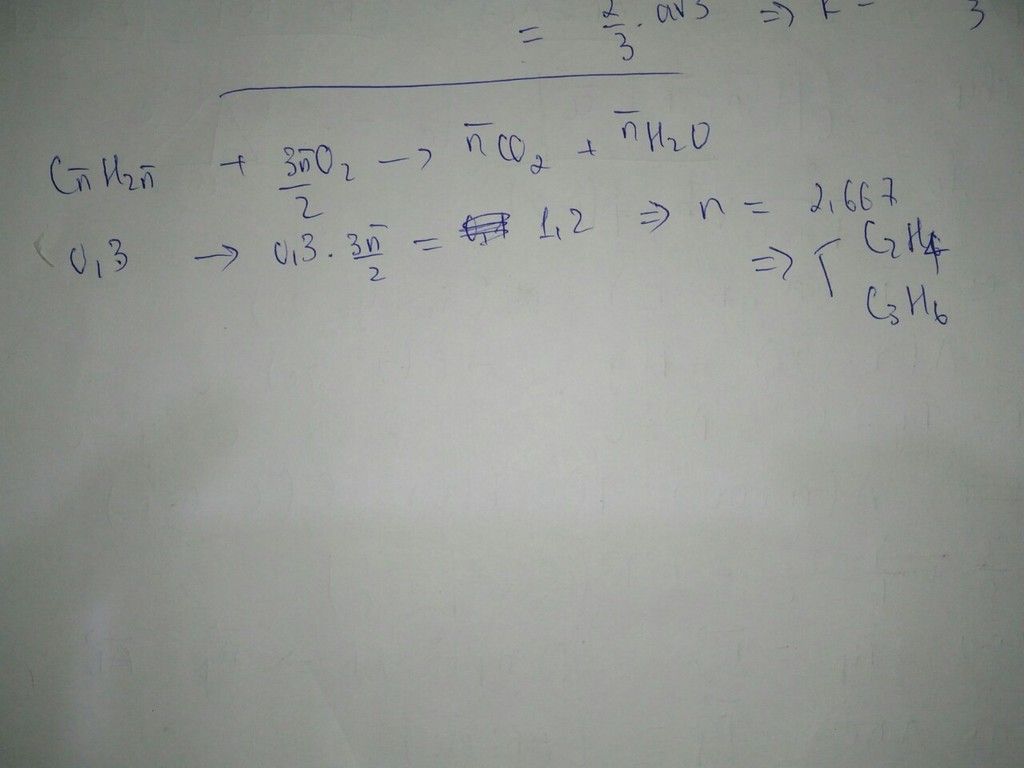 = 2/3 . ⇒
Cn̄H2n̄ + 3n̄/2 O2 → n̄CO2 + n̄H2O
0,3 → 0,3 . 3n̄/2 = 1,2 ⇒ n = 2,667
⇒ { C2H4
C3H6